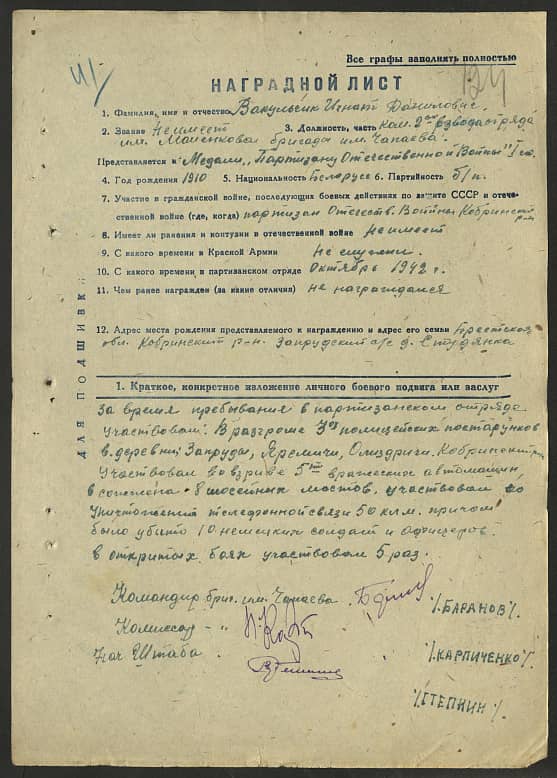 Все графы заполнять полностью
НАГРАДНОЙ ЛИСТ
1. Фамилия, имя и отчество Вакульчик Игнат Данилович.
2. Звание Не имеет 3. Должность, часть ком. 2го взвода отряда
им. бригады им. Чапаева.
Представляется к Медали „Партизану Отечественной Войны" I ст.
4. Год рождения 1910 5. Национальность Белорусс 6. Партийность б/п.
7. Участие в гражданской войне, последующих боевых действиях по защите СССР и отече-
ственной войне (где, когда) партизан Отечеств. Войны Кобринский р-н
8. Имеет ли ранения и контузии в отечественной войне Не имеет
9. С какого времени в Красной Армии Не служил.
10. С какого времени в партизанском отряде Октябрь 1942 г.
11. Чем ранее награжден (за какие отличия) не награждался
12. Адрес места рождения представляемого к награждению и адрес его семьи Брестская
обл. Кобринский р-н. Запрудский с/с д. Студянка
ДЛЯ ПОДШИВКИ
1. Краткое, конкретное изложение личного боевого подвига или заслуг
За время пребывания в партизанском отряде
участвовал: В разгроме 3ох полицейских постарунков
в деревни, Запруды, Яремичи, Кобринский р-н
Участвовал во взриве 5ти вражеских автомашин,
в 8 шосейных мостов, участвовал во
уничтожении телефонной связи 50 клм. причом
было убито 10 немецких солдат и офицеров.
в открытых боях участвовал 5 раз.
Командир бриг. им. Чапаева.
/.БАРАНОВ/.
Комиссар - „ -
/.КАРПИЧЕНКО/.
Нач Штаба
/СТЕПНИН/.